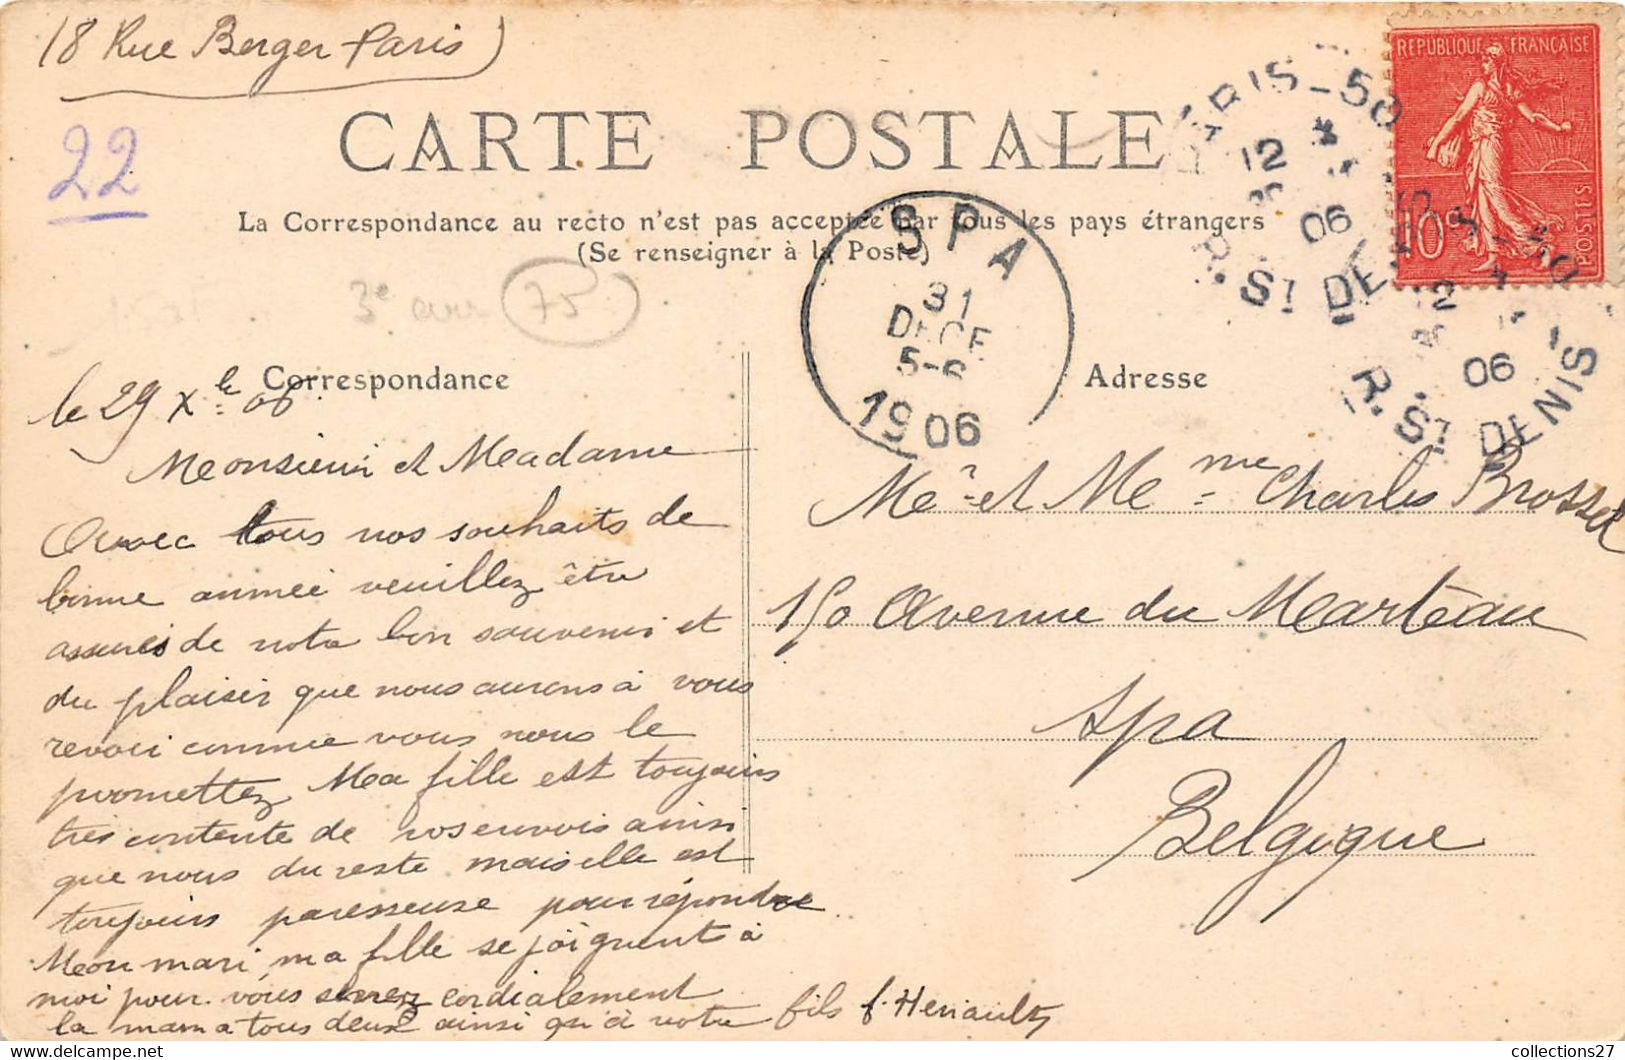 18 Rue Berger Paris
22
CARTE POSTALE
La Correspondance au recto n'est pas acceptée par tous les pays étrangers
(Se renseigner à la Poste)
3e arr 75
REPUBLIQUE FRANÇAISE
10c
POSTES
PARIS-50
12
06
R. ST DENIS
12
06
R. ST DENIS
SPA
31
DECE
5-6
1906
Correspondance
le 29 Xbre 06
Monsieur et Madame
Avec tous nos souhaits de
bonne année veuillez être
assurés de notre bon souvenir et
du plaisir que nous aurons à vous
revoir comme vous nous le
promettez Ma fille est toujours
très contente de vos envois ainsi
que nous du reste mais elle est
toujours paresseuse pour répondre
Mon mari, ma fille se joignent à
moi pour vous serrer cordialement
la main a tous deux ainsi qu'à votre fils f. Henault
Adresse
Mr et Mme Charles Brossel
150 Avenue du Marteau
Spa
Belgique
collections27